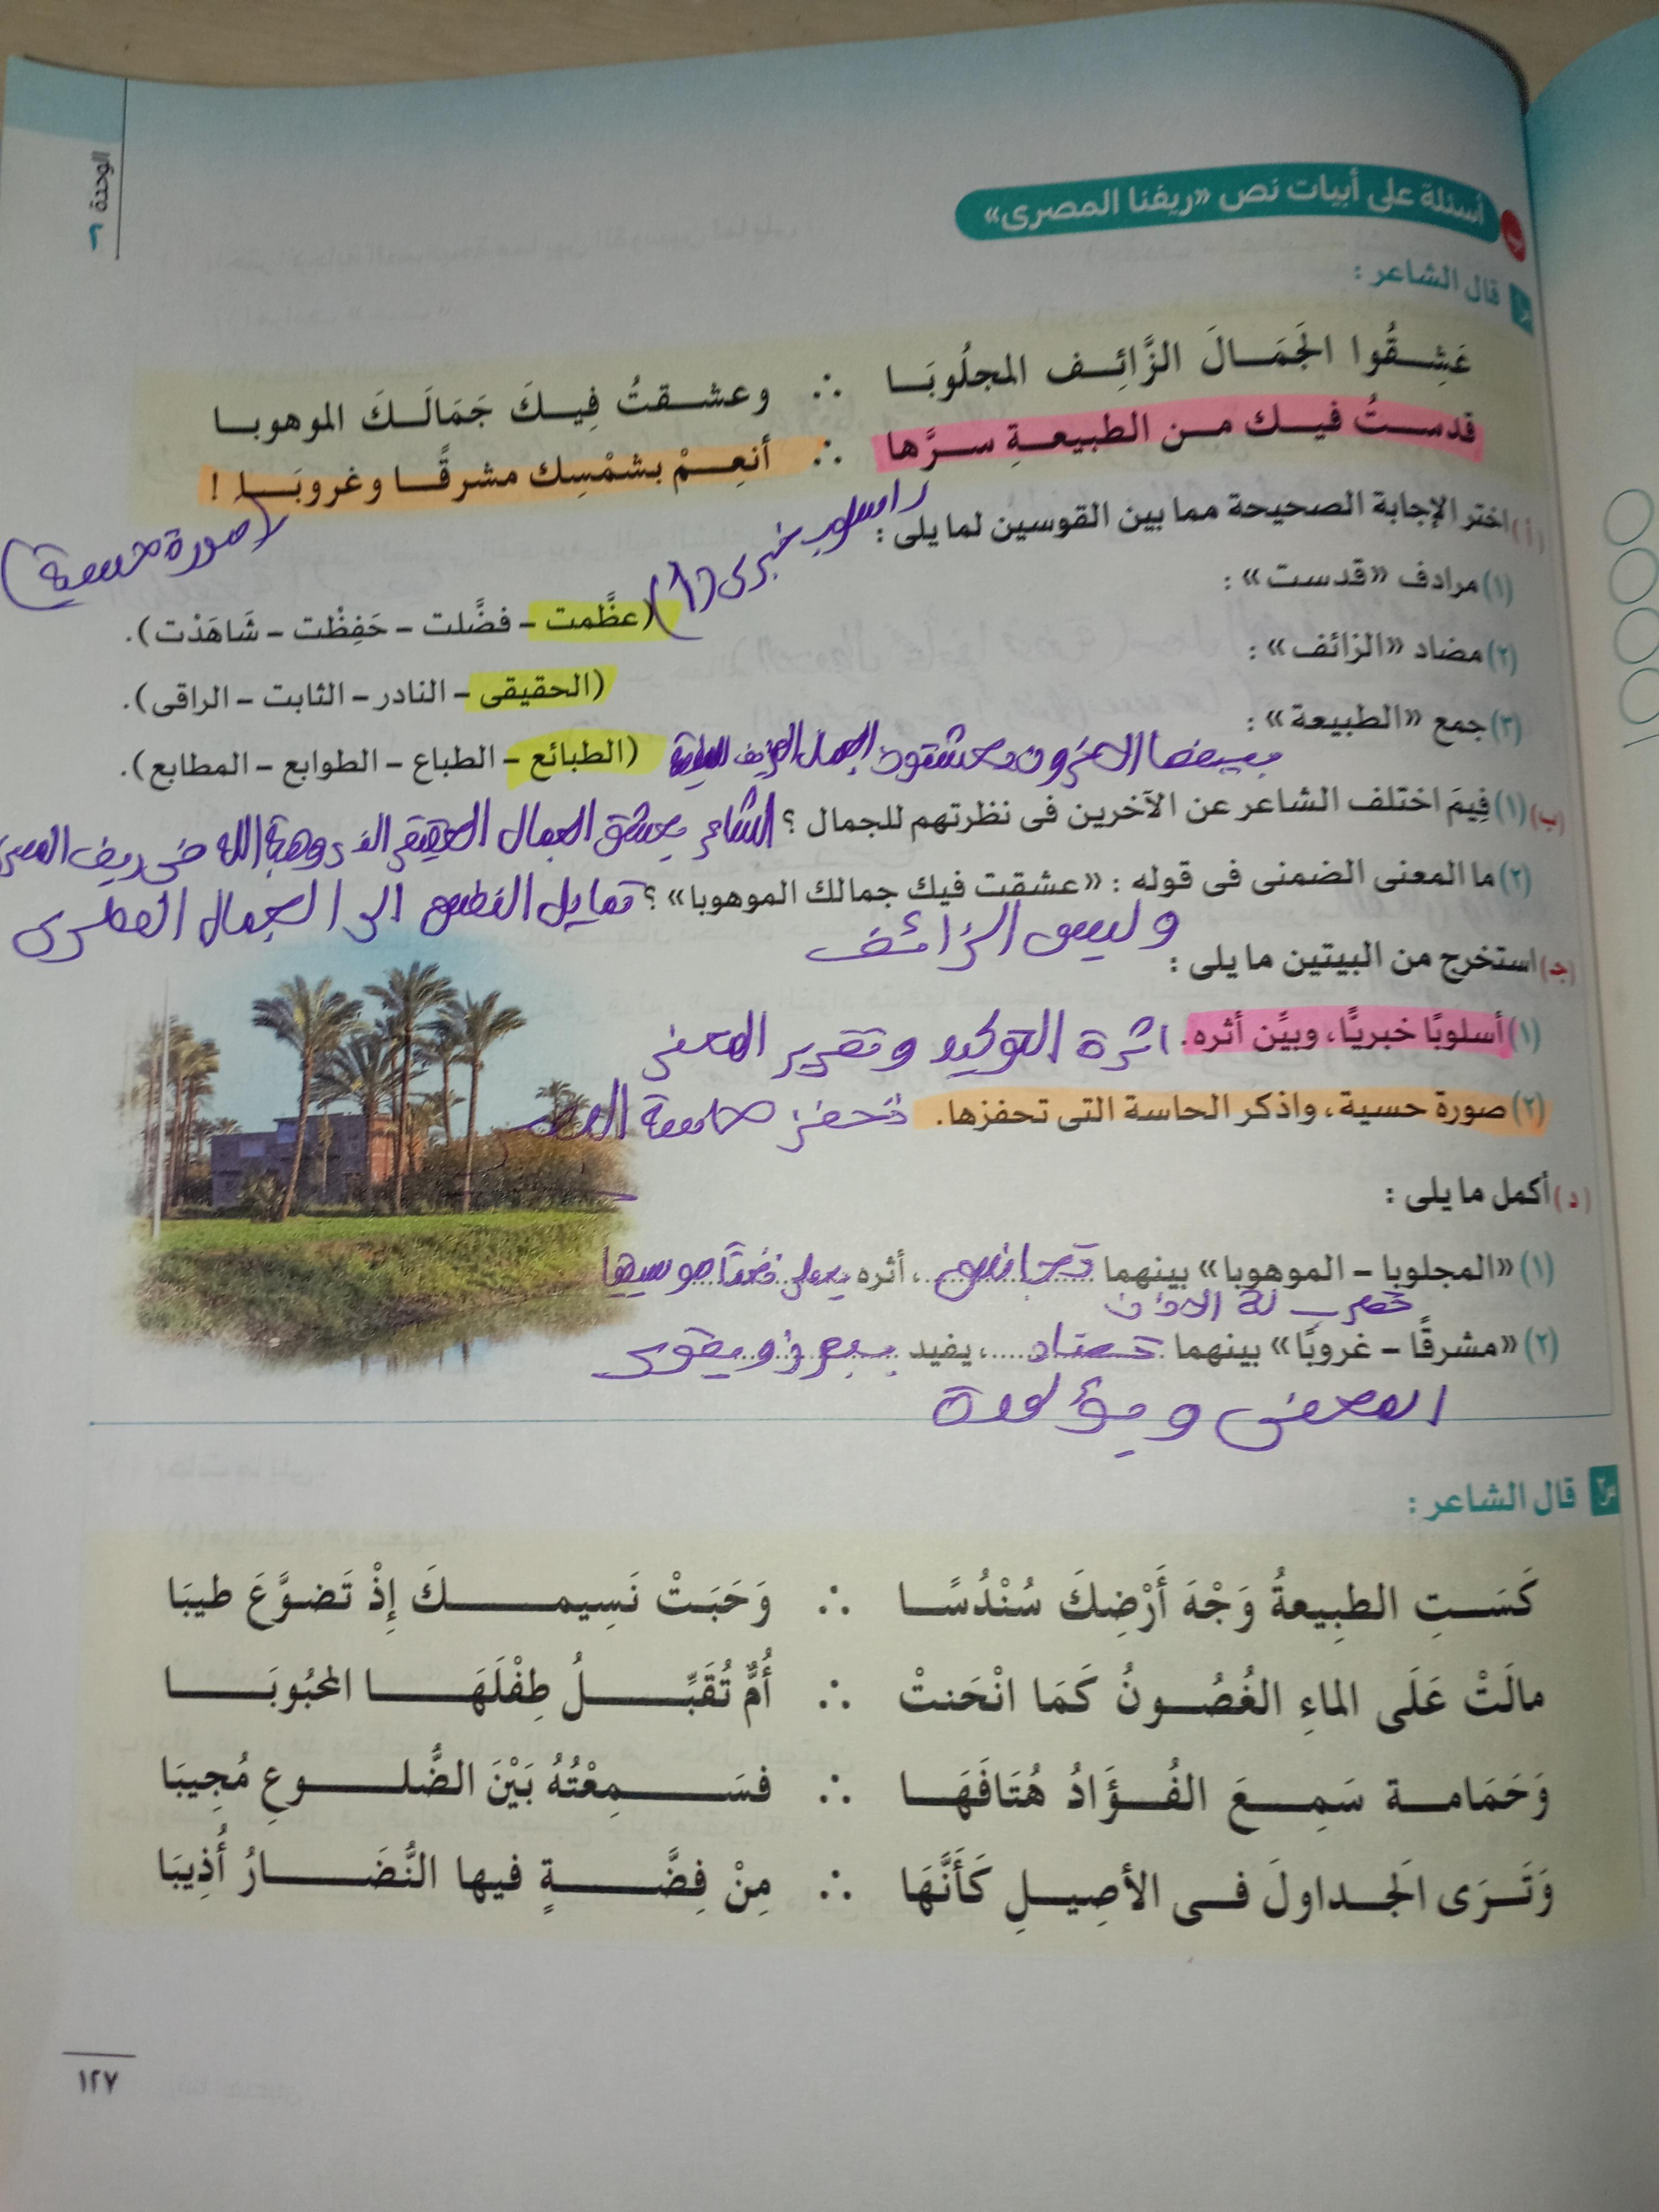 الوحدة ٢
أسئلة على أبيات نص «ريفنا المصرى»
١ قال الشاعر :
عَشِقُوا الجَمَالَ الزَّائِف المجلُوبَا ∴ وعشقتُ فِيكَ جَمَالَكَ الموهوبا
قدستُ فيك من الطبيعةِ سرَّها ∴ أنعِمْ بشمْسِك مشرقًا وغروبَا !
(أ) اختر الإجابة الصحيحة مما بين القوسين لما يلى :
(اسلوب خبرى (١)
(صورة حسية)
(١) مرادف «قدست» :
(عظَّمت – فضَّلت – حَفِظْت – شَاهَدْت).
(٢) مضاد «الزائف» :
(الحقيقى – النادر – الثابت – الراقى).
(٣) جمع «الطبيعة» :
(الطبائع – الطباع – الطوابع – المطابع).
بينما الاخرون يعشقون الجمال المزيف
(ب) (١) فِيمَ اختلف الشاعر عن الآخرين فى نظرتهم للجمال ؟ الشاعر يعشق الجمال الحقيقى الذى وهبة الله فى ريف
(٢) ما المعنى الضمنى فى قوله : «عشقت فيك جمالك الموهوبا» ؟ تمايل إلى الجمال الفطرى
وليس الزائف
(جـ) استخرج من البيتين ما يلى :
(١) أسلوبًا خبريًّا، وبيِّن أثره. اثرة التوكيد وتقرير المعنى
(٢) صورة حسية، واذكر الحاسة التى تحفزها. تحفز حاسة البصر
(د) أكمل ما يلى :
(١) «المجلوبا – الموهوبا» بينهما تجانس، أثره يعطى نغمًا موسيقيا
تطرب لة الاذن
(٢) «مشرقًا – غروبًا» بينهما تضاد، يفيد يبرز ويقوى
المعنى ويؤكدة
٢ قال الشاعر :
كَسَتِ الطبِيعةُ وَجْهَ أَرْضِكَ سُنْدُسًا ∴ وَحَبَتْ نَسِيمكَ إِذْ تَضوَّعَ طيبَا
مالَتْ عَلَى الماءِ الغُصُونُ كَمَا انْحَنتْ ∴ أُمٌّ تُقَبِّلُ طِفْلَهَا المحْبُوبَا
وَحَمَامة سَمِعَ الفُؤَادُ هُتَافَهَا ∴ فسَمِعْتُهُ بَيْنَ الضُّلوعِ مُجِيبَا
وَتَرَى الَجداولَ فى الأصِيلِ كَأَنَّهَا ∴ مِنْ فِضَّةٍ فيها النُّضَارُ أُذِيبَا
١٢٧